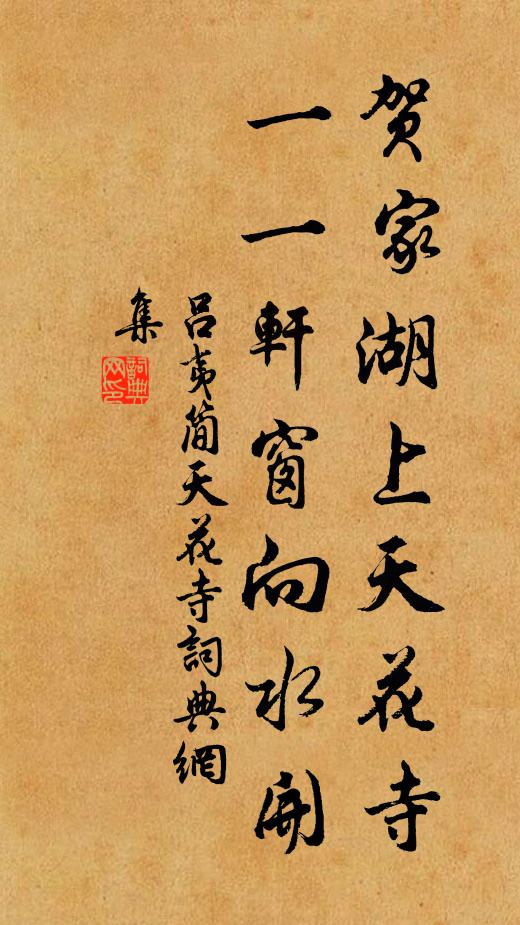 贺家湖上天花寺
一一軒窗向水開
吕夷简天花寺詞典網
集
詞典
网印